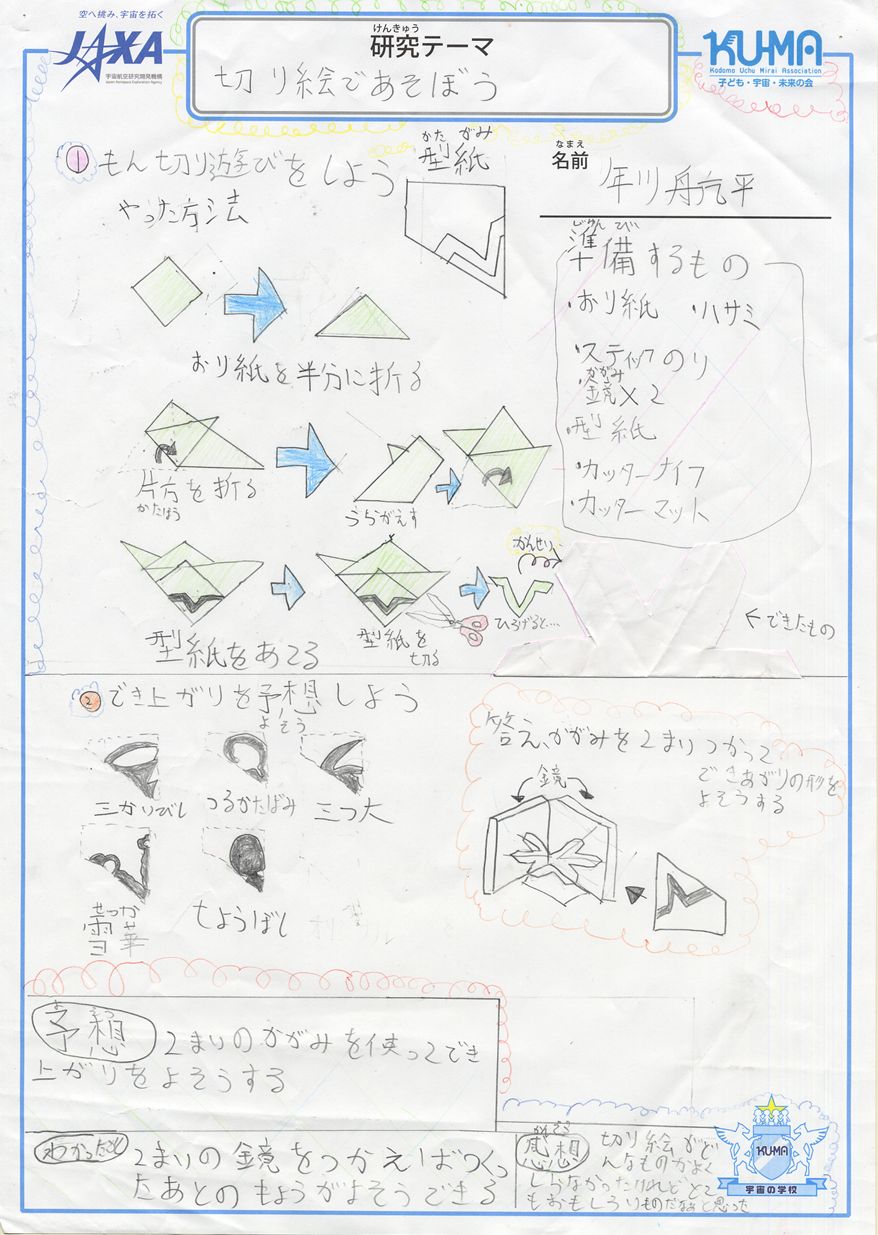 空へ挑み、宇宙を拓く
JAXA
宇宙航空研究開発機構
Japan Aerospace Exploration Agency
けんきゅう
研究テーマ
切り絵であそぼう
KU-MA
Kodomo Uchu Mirai Association
子ども・宇宙・未来の会
① もん切り遊びをしよう
やった方法
かた がみ
型紙
なまえ
名前
じゅん び
準備するもの
・おり紙 ・ハサミ
・スティックのり
かがみ
・鏡×2
型紙
・カッターナイフ
・カッターマット
おり紙を半分に折る
片方を折る
かたほう
うらがえす
型紙をあてる
型紙を
切る
かんせい
ひろげると…
←できたもの
② でき上がりを予想しよう
よそう
三かいびし
つるかたばみ
三つ大
せつか
雪華
ちょうばし
答え、かがみを2まいつかって
できあがりの形を
よそうする
鏡
予想
2まいのかがみを使ってでき
上がりをよそうする
わかったこと
2まいの鏡をつかえばつくっ
たあとのもようがよそうできる
感想
切り絵がど
んなものかよく
しらなかったけれどとて
もおもしろいものだなぁと思った
KU-MA
宇宙の学校